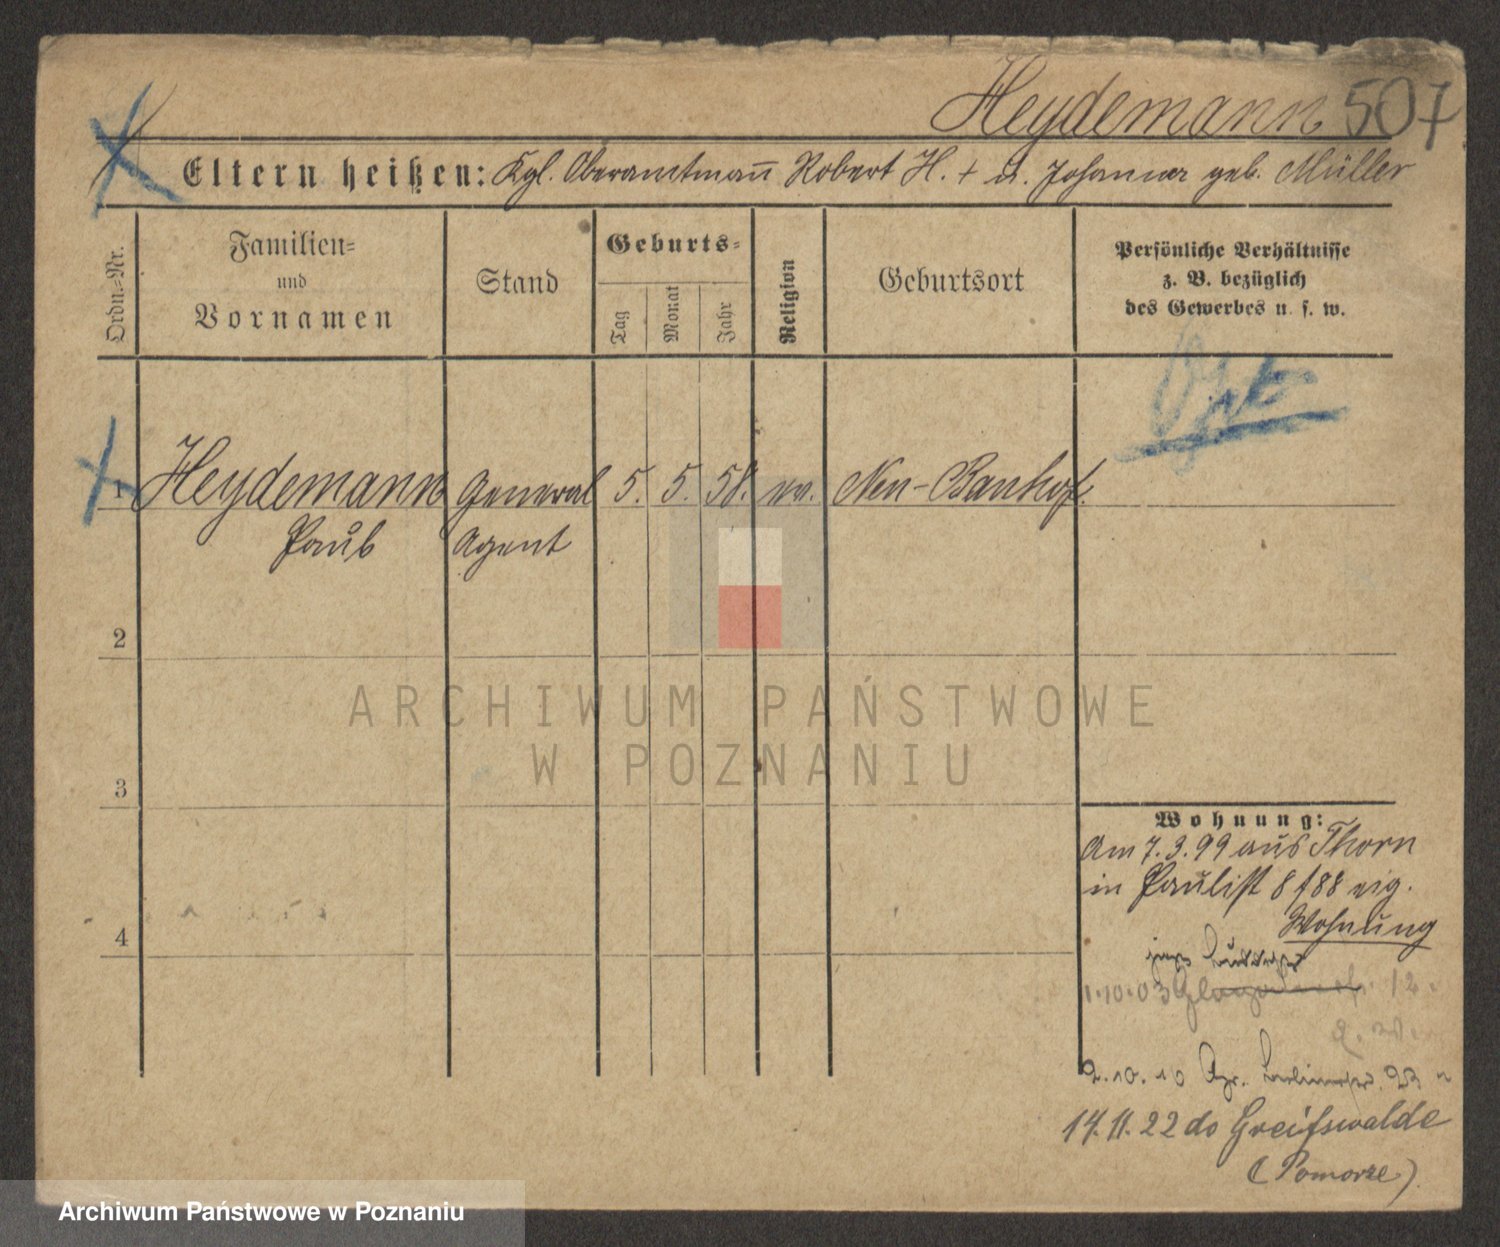 Heydemann 507
Eltern heißen: Kgl. Oberamtmann Robert H. + u. Johanna geb. Müller
Ordn.-Nr.
Familien-
und
Vornamen
Stand
Geburts-
Tag
Monat
Jahr
Religion
Geburtsort
Persönliche Verhältnisse
z. B. bezüglich
des Gewerbes u. s. w.
1 Heydemann General 5. 5. 58. ev. Neu-Bauhof.
Paul Agent
2
ARCHIWUM PAŃSTWOWE
W POZNANIU
3
Wohnung:
Am 7.3.99 aus Thorn
in Paulistr 8 eig.
Wohnung
4
1.10.03 12.
2.10.10 23
14.11.22 do Greifswalde
(Pomorze).
Archiwum Państwowe w Poznaniu